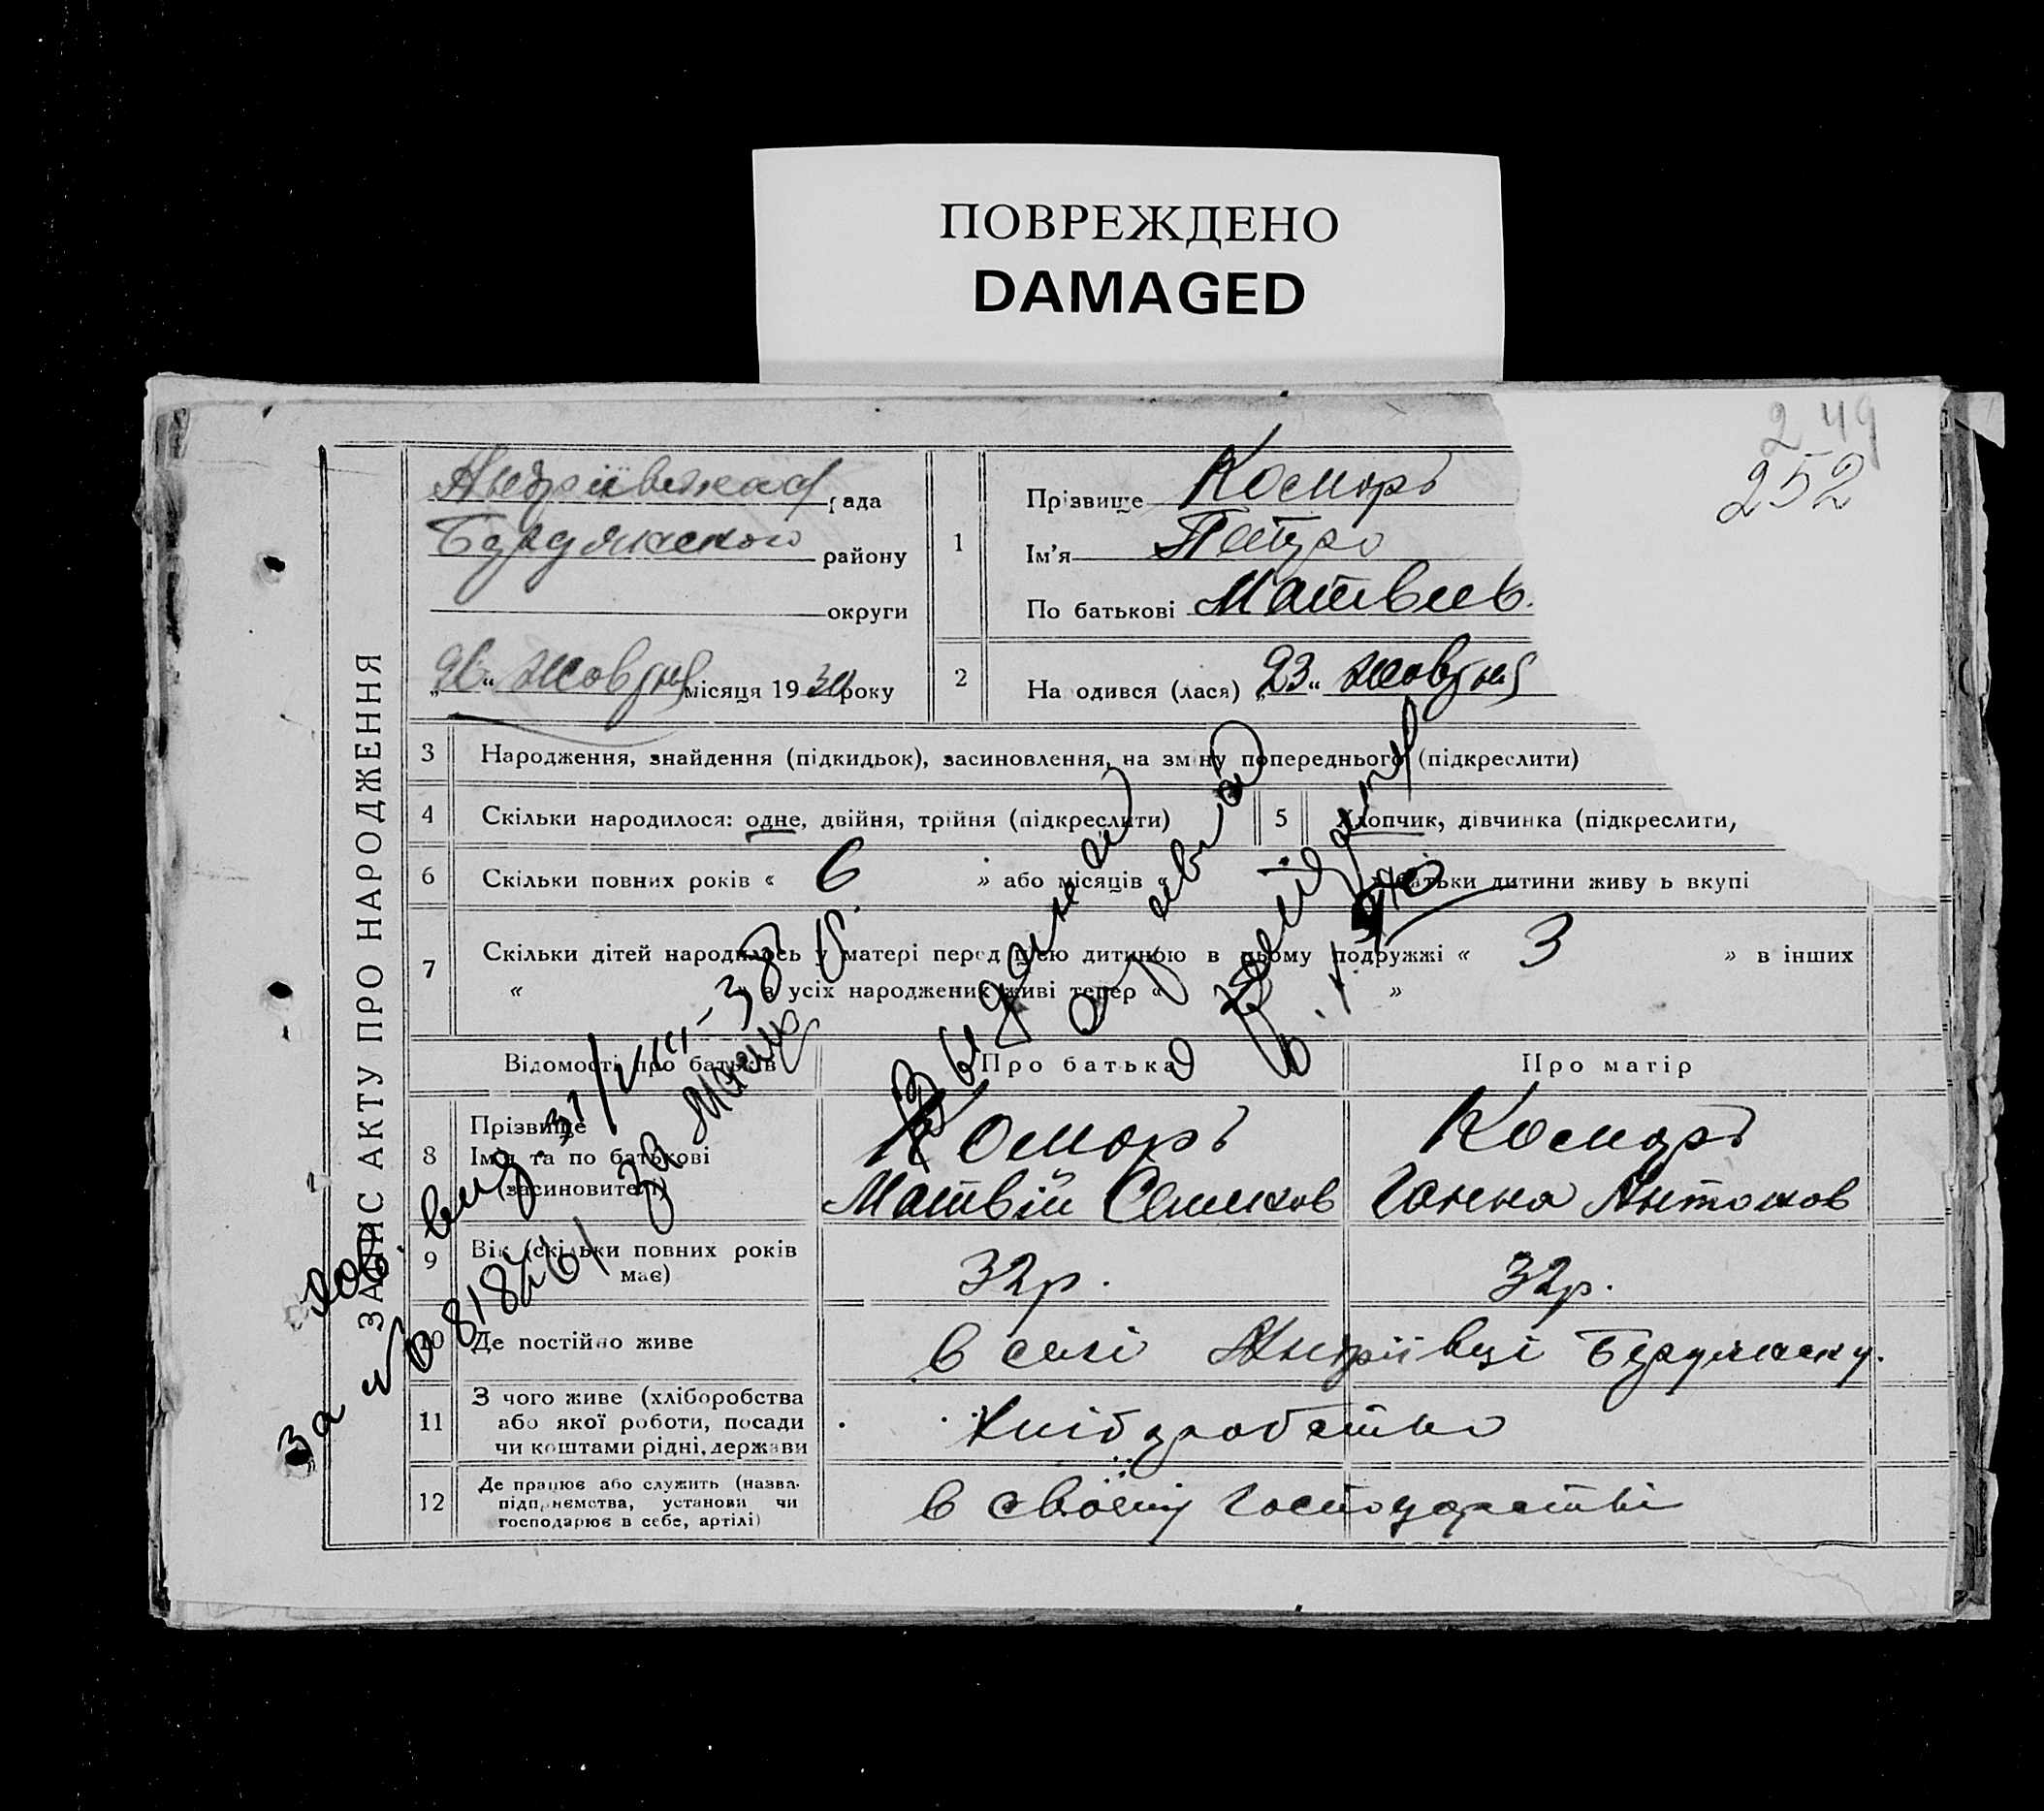 ПОВРЕЖДЕНО
DAMAGED
249
252
ЗАПИС АКТУ ПРО НАРОДЖЕННЯ
Андріївська рада
Бердянського району
округи
„26“ Жовтня місяця 1930 року
1
Прізвище Коморъ
Ім'я Петро
По батькові Матвієв.
2 На одився (лася) „23“ жовтня
3 Народження, знайдення (підкидьок), засиновлення, на зміну попереднього (підкреслити)
4 Скільки народилося: одне, двійня, трійня (підкреслити) 5 Хлопчик, дівчинка (підкреслити,
6 Скільки повних років « 6 » або місяців « батьки дитини живу ь вкупі
7 Скільки дітей народилось у матері перед цією дитиною в цьому подружжі « 3 » в інших
« » а усіх народжених живі тепер « »
Відомості про батьків Про батька Про матір
8 Прізвище
Ім'я та по батькові
(засиновителі)
Коморъ
Матвій
Коморъ
Ганна Антонов
9 Вік (скільки повних років
має)
32р.
32р.
10 Де постійно живе в селі Андріївці Бердянську.
11 З чого живе (хліборобства
або якої роботи, посади
чи коштами рідні, держави
Хліборобство
12 Де працює або служить (назва.
підприємства, установи чи
господарює в себе, артілі)
в своєму господарстві
вид. 31/VIII-38 р.
За № 818461 за
Выдана